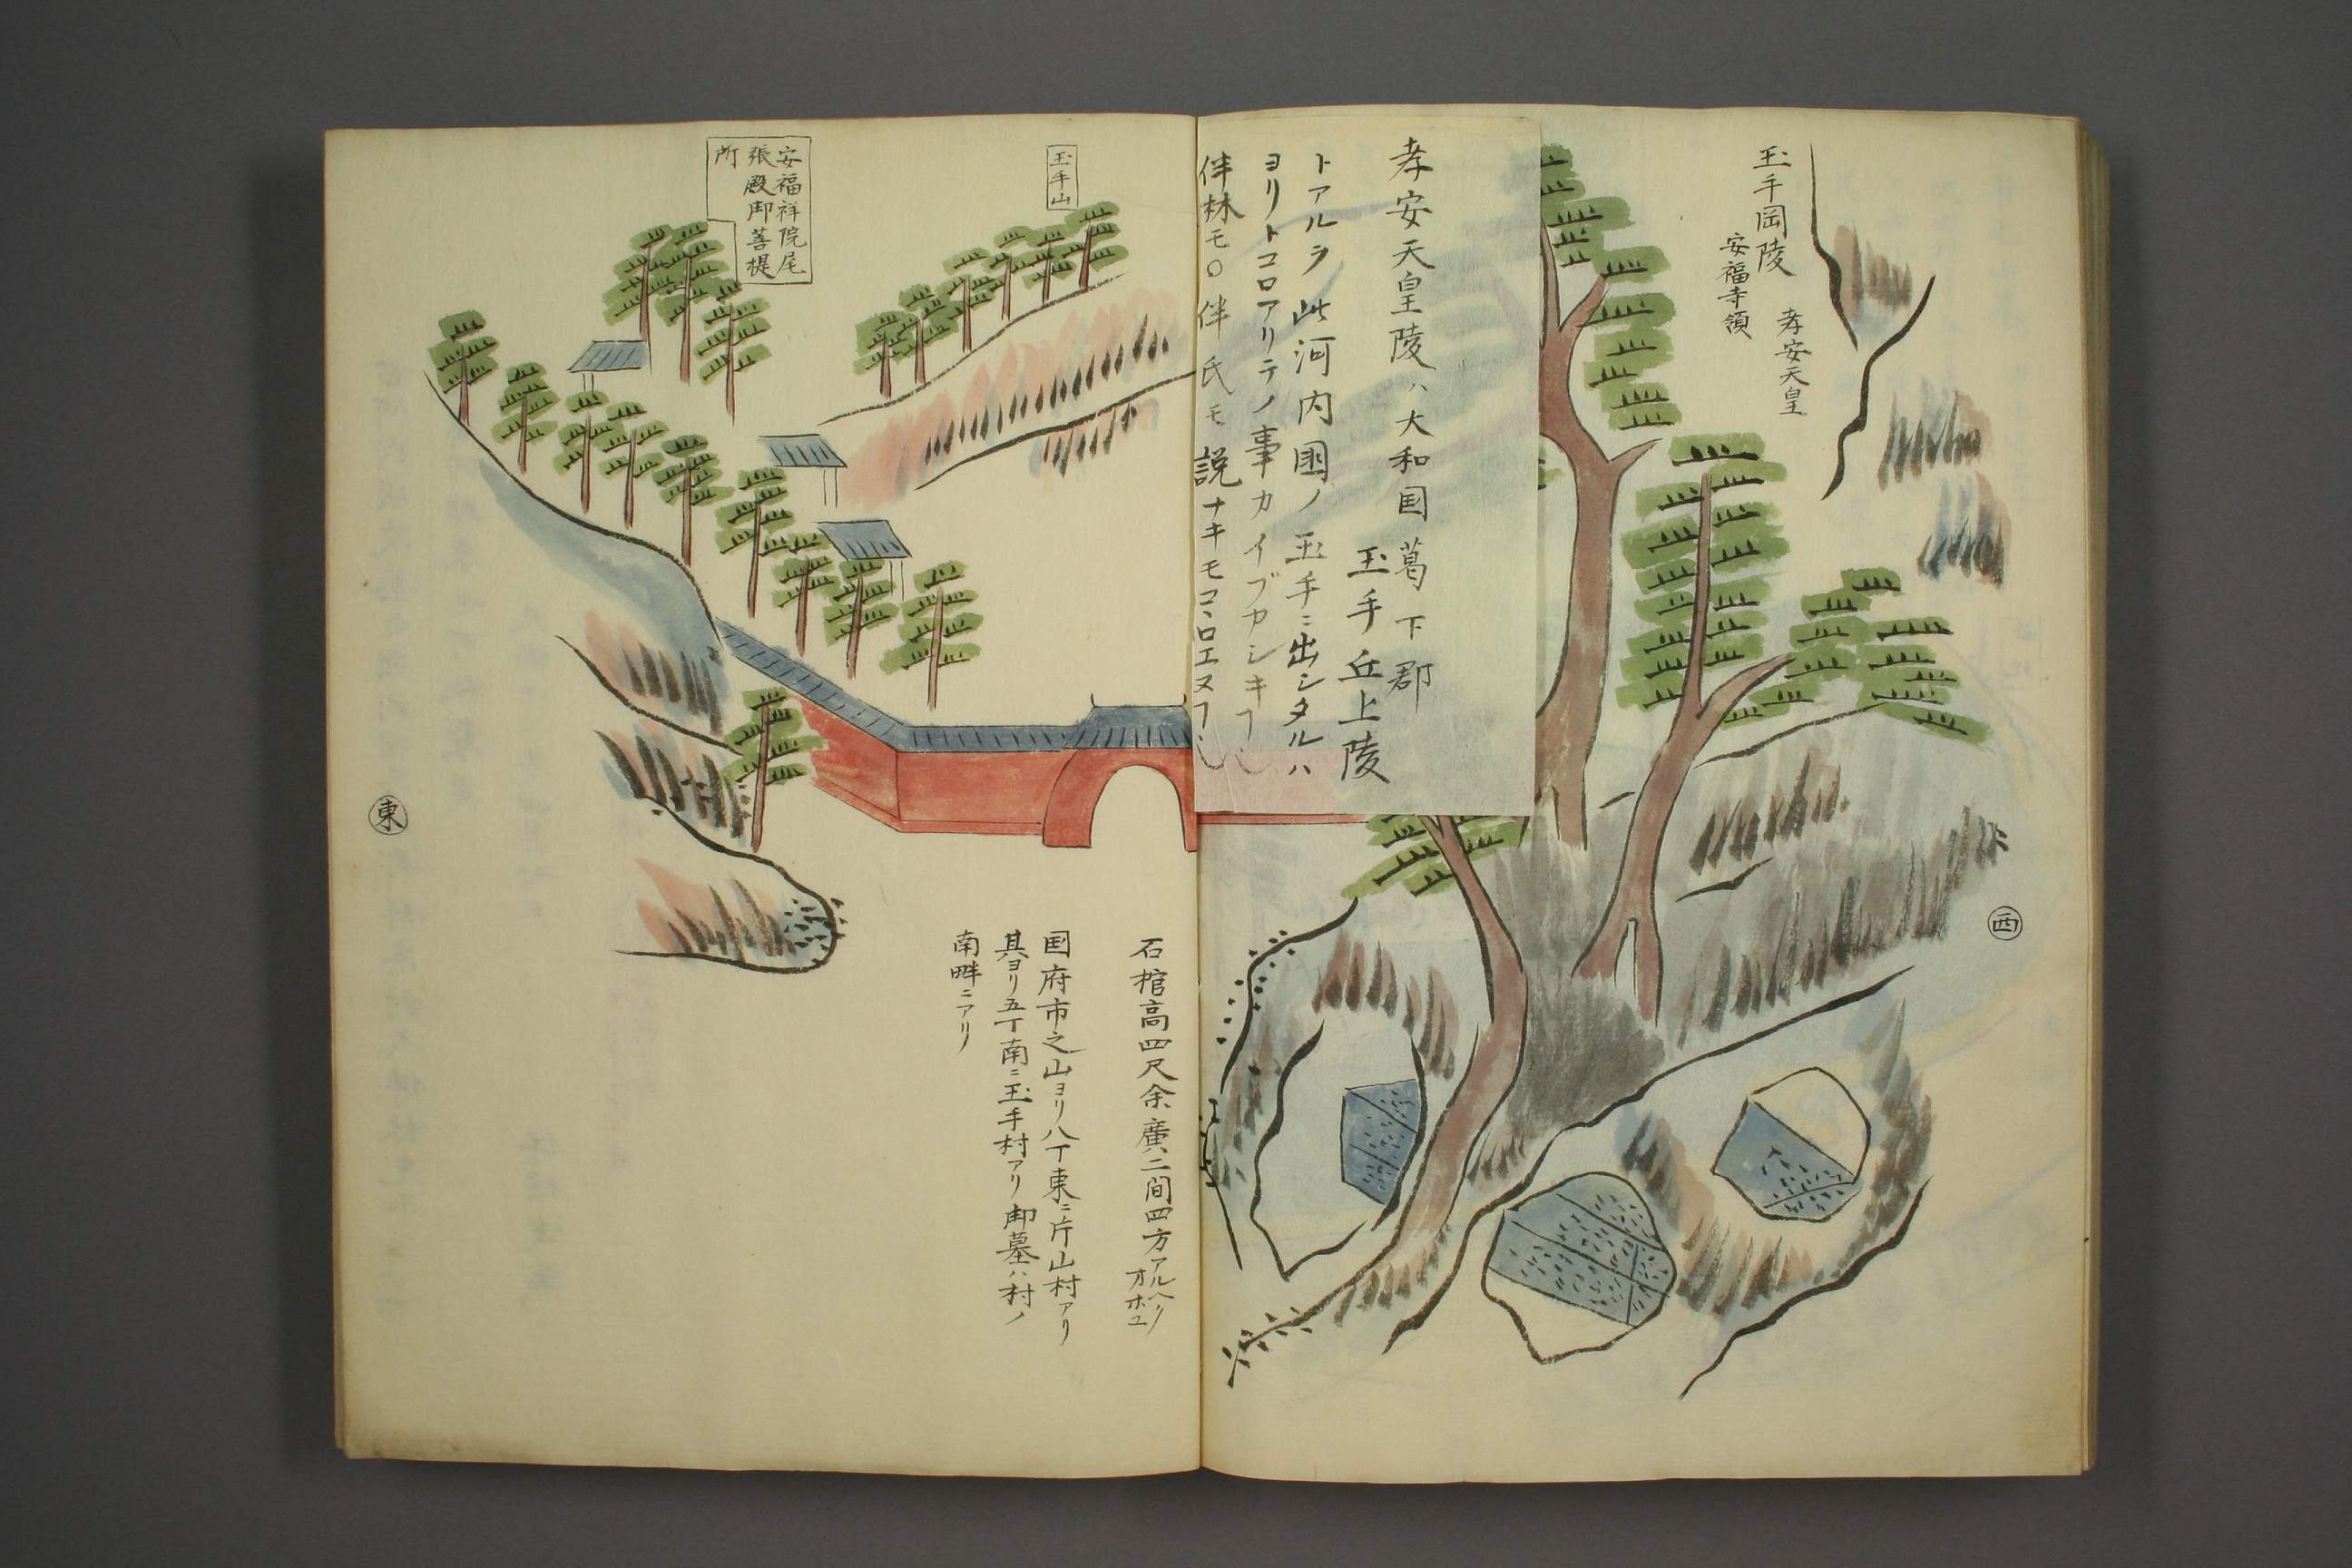 玉手岡陵 孝安天皇
安福寺領
西
孝安天皇陵ハ大和国葛下郡
玉手丘上陵
トアルヲ此河内國ノ玉手ニ出シタルハ
ヨリトコロアリテノ事カイブカシキ
伴林モ〇伴氏モ説ナキモコヽロエヌ
玉手山
安福祥院尾
張殿御菩提
所
石棺高四尺余廣二間四方アルヘク
オホユ
国府市之山ヨリ八丁東ニ片山村アリ
其ヨリ五丁南ニ玉手村アリ御墓ハ村ノ
南畔ニアリ
東